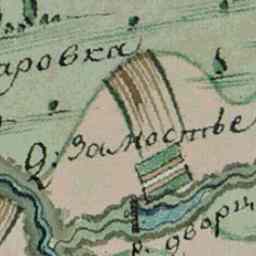 аровка
Д. Замостье
р. дворц